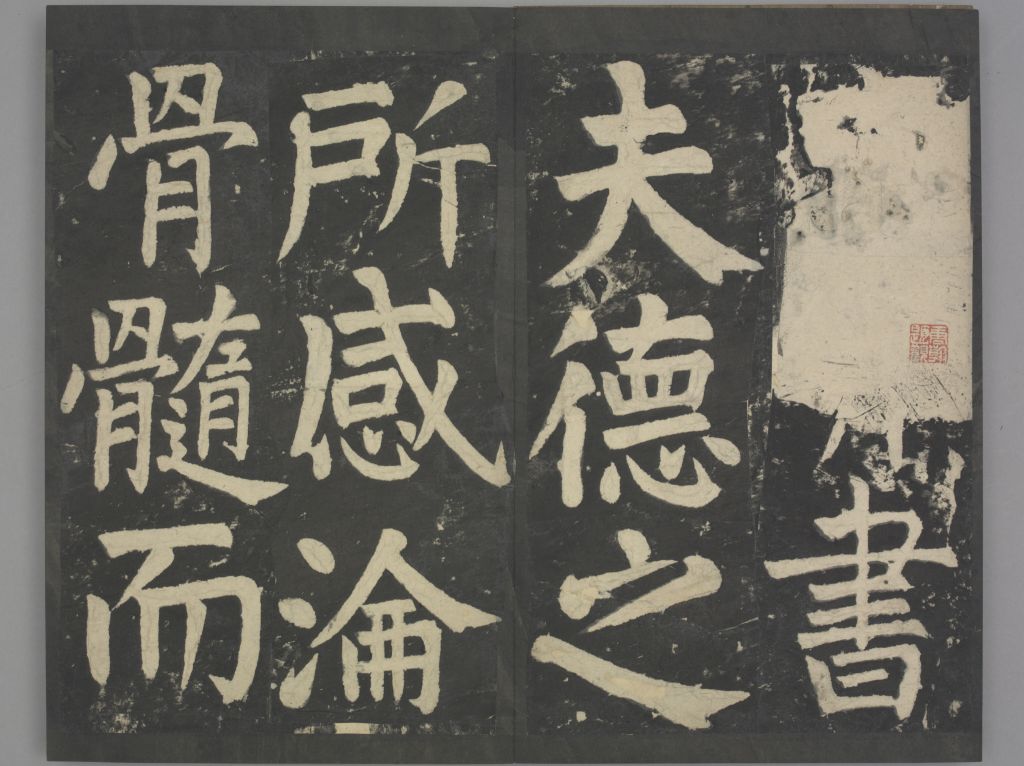 書
夫德之
所感淪
骨髓而